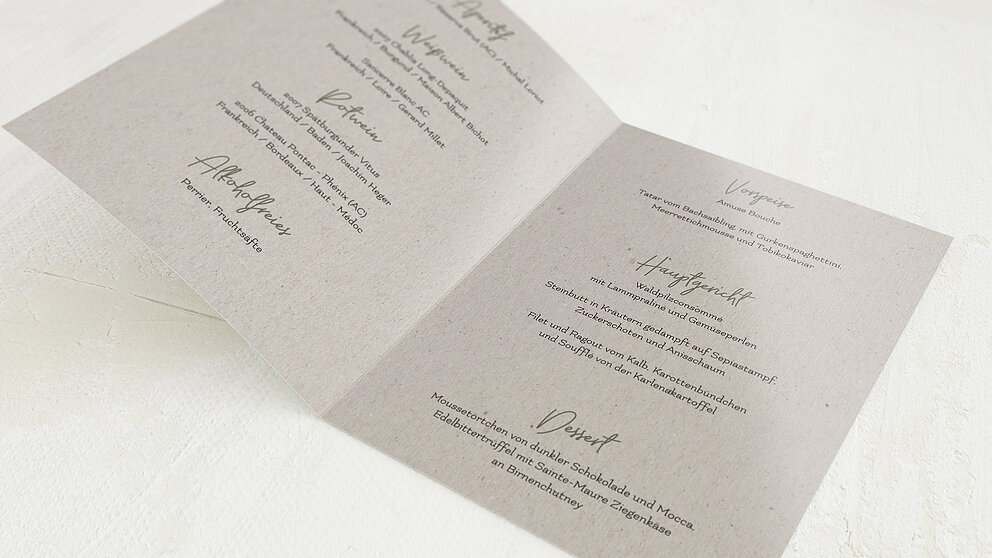 Aperitif
Brut (AC) / Michel Loriot
Weißwein
2007 Chablis Long-Depaquit
Frankreich / Burgund / Maison Albert Bichot
Sancerre Blanc AC
Frankreich / Loire / Gerard Millet
Rotwein
2007 Spätburgunder Vitus
Deutschland / Baden / Joachim Heger
2006 Chateau Pontac - Phénix (AC)
Frankreich / Bordeaux / Haut - Medoc
Alkoholfreies
Perrier, Fruchtsäfte
Vorspeise
Amuse Bouche
Tatar vom Bachsaibling, mit Gurkenspaghettini,
Meerrettichmousse und Tobikokaviar
Hauptgericht
Waldpilzconsommé
mit Lammpraline und Gemüseperlen
Steinbutt in Kräutern gedämpft auf Sepiastampf,
Zuckerschoten und Anisschaum
Filet und Ragout vom Kalb, Karottenbündchen
und Soufflé von der Karlenakartoffel
Dessert
Moussetörtchen von dunkler Schokolade und Mocca,
Edelbittertrüffel mit Sainte-Maure Ziegenkäse
an Birnenchutney